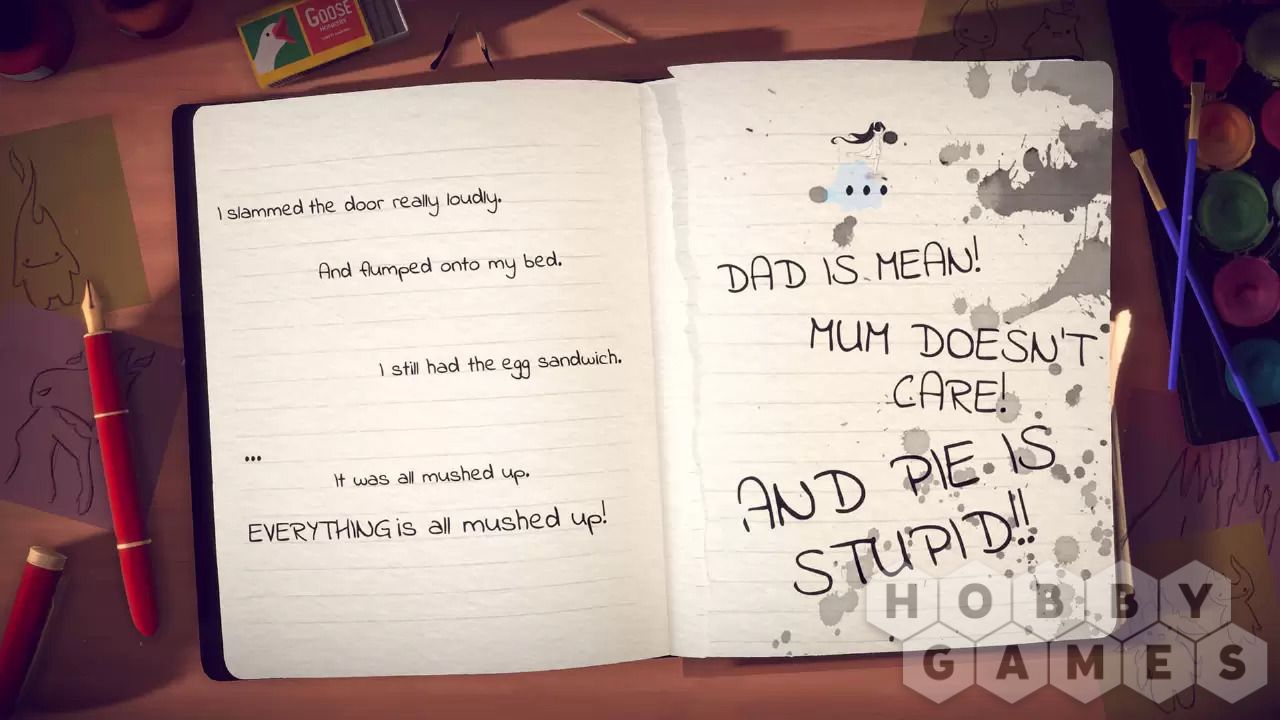 GOOSE
I slammed the door really loudly.
And flumped onto my bed.
I still had the egg sandwich.
...
It was all mushed up.
EVERYTHING is all mushed up!
DAD IS MEAN!
MUM DOESN'T
CARE!
AND PIE IS
STUPID!!
HOBBY
GAMES